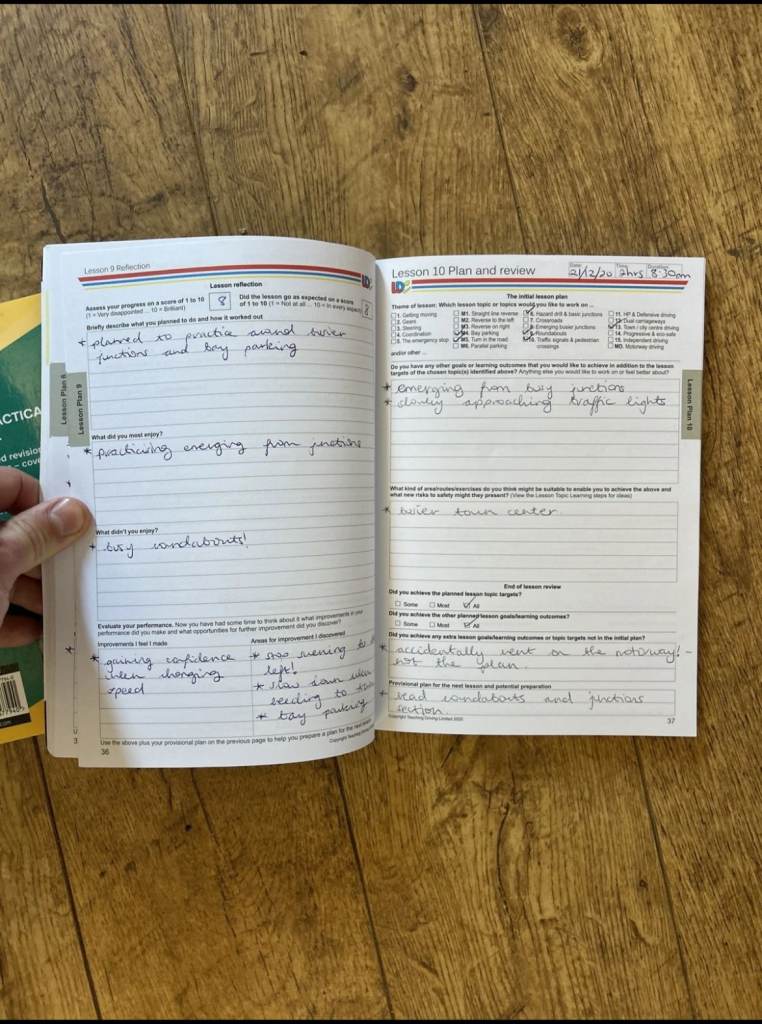 Lesson 9 Reflection
Lesson reflection
Assess your progress on a score of 1 to 10
(1 = Very disappointed ... 10 = Brilliant)
8
Did the lesson go as expected on a score
of 1 to 10 (1 = Not at all ... 10 = In every aspect)
8
Briefly describe what you planned to do and how it worked out
* planned to practice around busier
junctions and bay parking
What did you most enjoy?
* practicing emerging from junctions
What didn't you enjoy?
* busy roundabouts!
Evaluate your performance. Now you have had some time to think about it what improvements in your
performance did you make and what opportunities for further improvement did you discover?
Improvements I feel I made
* gaining confidence
when changing
speed
Areas for improvement I discovered
* stop running to
left!
* slow down when
needing to
* bay parking
Use the above plus your provisional plan on the previous page to help you prepare a plan for the next
36
Lesson Plan 8
Lesson Plan 9
LD
Lesson 10 Plan and review
Date
21/12/20
Time
2hrs
Duration
8:30am
The initial lesson plan
Theme of lesson: Which lesson topic or topics would you like to work on ...
1. Getting moving
2. Gears
3. Steering
4. Coordination
5. The emergency stop
M1. Straight line reverse
M2. Reverse to the left
M3. Reverse on right
M4. Bay parking
M5. Turn in the road
M6. Parallel parking
6. Hazard drill & basic junctions
7. Crossroads
8. Emerging busier junctions
9. Roundabouts
10. Traffic signals & pedestrian
crossings
11. HP & Defensive driving
12. Dual carriageways
13. Town / city centre driving
14. Progressive & eco-safe
15. Independent driving
MD. Motorway driving
and/or other ...
Do you have any other goals or learning outcomes that you would like to achieve in addition to the lesson
targets of the chosen topic(s) identified above? Anything else you would like to work on or feel better about?
* emerging from busy junctions
* slowly approaching traffic lights
What kind of area/routes/exercises do you think might be suitable to enable you to achieve the above and
what new risks to safety might they present? (View the Lesson Topic Learning steps for ideas)
* busier town center
End of lesson review
Did you achieve the planned lesson topic targets?
Some Most All
Did you achieve the other planned lesson goals/learning outcomes?
Some Most All
Did you achieve any extra lesson goals/learning outcomes or topic targets not in the initial plan?
* accidentally went on the motorway! -
not the plan.
Provisional plan for the next lesson and potential preparation
* read roundabouts and junctions
section.
Copyright Teaching Driving Limited 2020
37
Lesson Plan 10
ACTICA
d revision